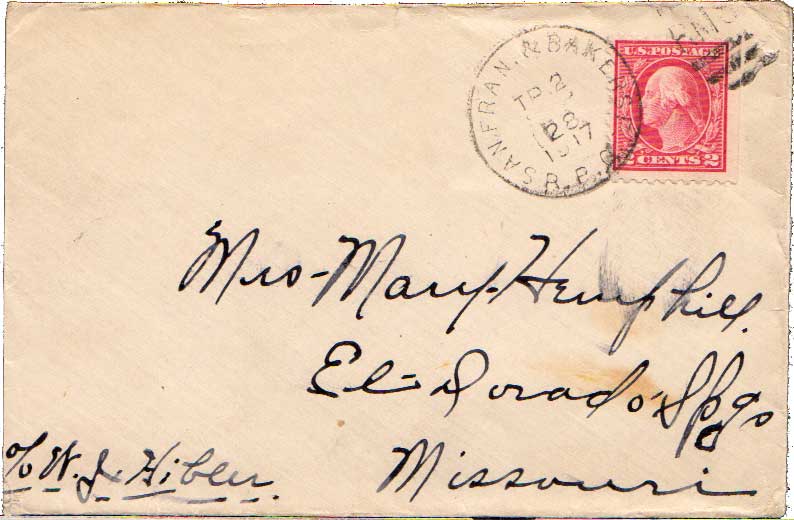 RMS
SAN.FRAN. & BAKERS
TR 2
28
1917
R.P.O.
U.S. POSTAGE
2 CENTS 2
Mrs- Mary- Hemphill.
El-Dorado Spgs
Missouri
c/o W. J. Hibler